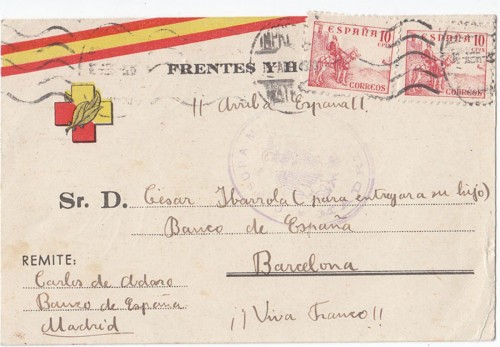 ESPAÑA 10 CTS
CORREOS
ESPAÑA 10 CTS
CORREOS
FRENTES Y H
¡¡ Arriba España!!
Sr. D. César Ibarrola (para entregar a su hijo)
Banco de España
Barcelona
REMITE:
Carlos de Adaro
Banco de España
Madrid
¡¡Viva Franco!!